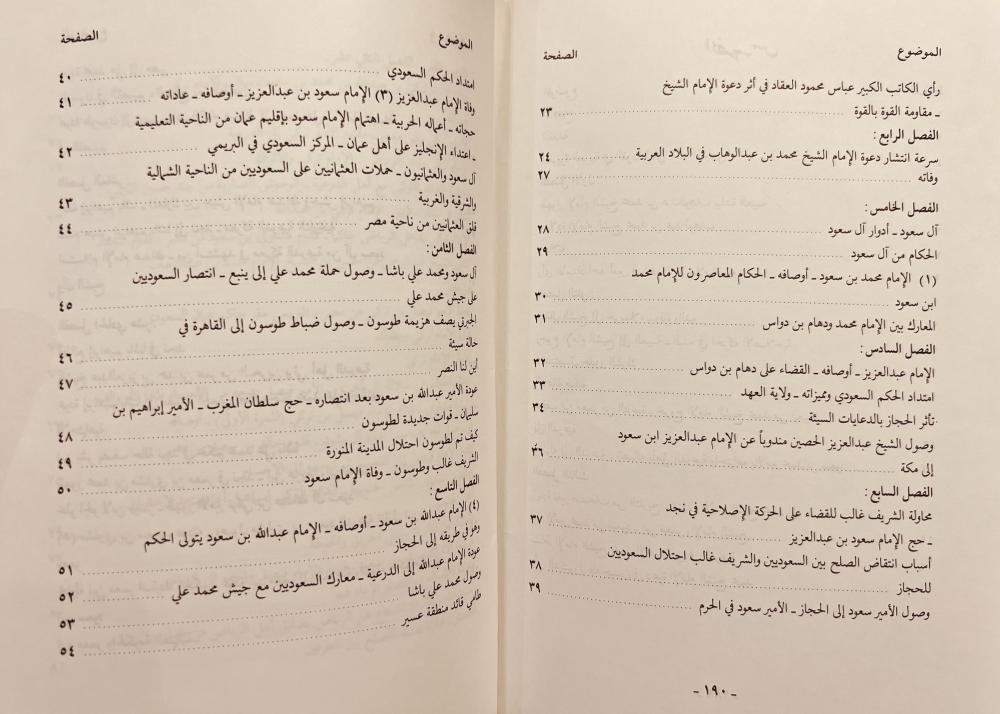 الموضوع الصفحة
رأي الكاتب الكبير عباس محمود العقاد في أثر دعوة الإمام الشيخ
ـ مقاومة القوة بالقوة ........ ٢٣
الفصل الرابع :
سرعة انتشار دعوة الإمام الشيخ محمد بن عبدالوهاب في البلاد العربية ........ ٢٤
وفاته ........ ٢٧
الفصل الخامس :
آل سعود ـ أدوار آل سعود ........ ٢٨
الحكام من آل سعود ........ ٢٩
(١) الإمام محمد بن سعود ـ أوصافه ـ الحكام المعاصرون للإمام محمد
ابن سعود ........ ٣٠
المعارك بين الإمام محمد ودهام بن دواس ........ ٣١
الفصل السادس :
الإمام عبدالعزيز ـ أوصافه ـ القضاء على دهام بن دواس ........ ٣٢
امتداد الحكم السعودي ومميزاته ـ ولاية العهد ........ ٣٣
تأثر الحجاز بالدعايات السيئة ........ ٣٤
وصول الشيخ عبدالعزيز الحصين مندوباً عن الإمام عبدالعزيز ابن سعود
إلى مكة ........ ٣٦
الفصل السابع :
محاولة الشريف غالب للقضاء على الحركة الإصلاحية في نجد
ـ حج الإمام سعود بن عبدالعزيز ........ ٣٧
أسباب انتقاض الصلح بين السعوديين والشريف غالب احتلال السعوديين
للحجاز ........ ٣٨
وصول الأمير سعود إلى الحجاز ـ الأمير سعود في الحرم ........ ٣٩
ـ ١٩٠ ـ
الموضوع الصفحة
امتداد الحكم السعودي ........ ٤٠
وفاة الإمام عبدالعزيز (٣) الإمام سعود بن عبدالعزيز ـ أوصافه ـ عاداته ........ ٤١
حجاته ـ أعماله الحربية ـ اهتمام الإمام سعود بإقليم عمان من الناحية التعليمية
ـ اعتداء الإنجليز على أهل عمان ـ المركز السعودي في البريمي ........ ٤٢
آل سعود والعثمانيون ـ حملات العثمانيين على السعوديين من الناحية الشمالية
والشرقية والغربية ........ ٤٣
قلق العثمانيين من ناحية مصر ........ ٤٤
الفصل الثامن :
آل سعود ومحمد علي باشا ـ وصول حملة محمد علي إلى ينبع ـ انتصار السعوديين
على جيش محمد علي ........ ٤٥
الجبرتي يصف هزيمة طوسون ـ وصول ضباط طوسون إلى القاهرة في
حالة سيئة ........ ٤٦
أين لنا النصر ........ ٤٧
عودة الأمير عبدالله بن سعود بعد انتصاره ـ حج سلطان المغرب ـ الأمير إبراهيم بن
سليمان ـ قوات جديدة لطوسون ........ ٤٨
كيف تم لطوسون احتلال المدينة المنورة ........ ٤٩
الشريف غالب وطوسون ـ وفاة الإمام سعود ........ ٥٠
الفصل التاسع :
(٤) الإمام عبدالله بن سعود ـ أوصافه ـ الإمام عبدالله بن سعود يتولى الحكم
وهو في طريقه إلى الحجاز ........ ٥١
عودة الإمام عبدالله إلى الدرعية ـ معارك السعوديين مع جيش محمد علي ........ ٥٢
وصول محمد علي باشا ........ ٥٣
طامي قائد منطقة عسير ........ ٥٤